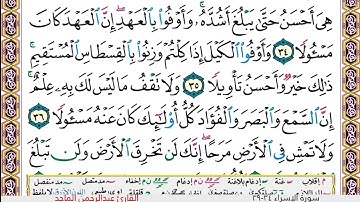 هِىَ أَحْسَنُ حَتَّىٰ يَبْلُغَ أَشُدَّهُۥ ۚ وَأَوْفُوا۟ بِٱلْعَهْدِ ۖ إِنَّ ٱلْعَهْدَ كَانَ
مَسْـُٔولًا ٣٤ وَأَوْفُوا۟ ٱلْكَيْلَ إِذَا كِلْتُمْ وَزِنُوا۟ بِٱلْقِسْطَاسِ ٱلْمُسْتَقِيمِ ۚ
ذَٰلِكَ خَيْرٌ وَأَحْسَنُ تَأْوِيلًا ٣٥ وَلَا تَقْفُ مَا لَيْسَ لَكَ بِهِۦ عِلْمٌ ۚ
إِنَّ ٱلسَّمْعَ وَٱلْبَصَرَ وَٱلْفُؤَادَ كُلُّ أُو۟لَـٰٓئِكَ كَانَ عَنْهُ مَسْـُٔولًا ٣٦
وَلَا تَمْشِ فِى ٱلْأَرْضِ مَرَحًا ۖ إِنَّكَ لَن تَخْرِقَ ٱلْأَرْضَ وَلَن تَبْلُغَ
سورة الإسراء ٣٤-٣٩ القارئ عبدالرحمن الماجد